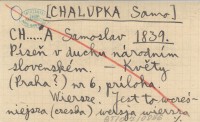 [CHALUPKA Samo]
CH.....A Samoslav 1839.
Píseň v duchu národním
slovenském. — Květy
(Praha?) nr 6, príloha
Wiersz. Jest to wcześ-
niejsza (czeska) wersja wiersza